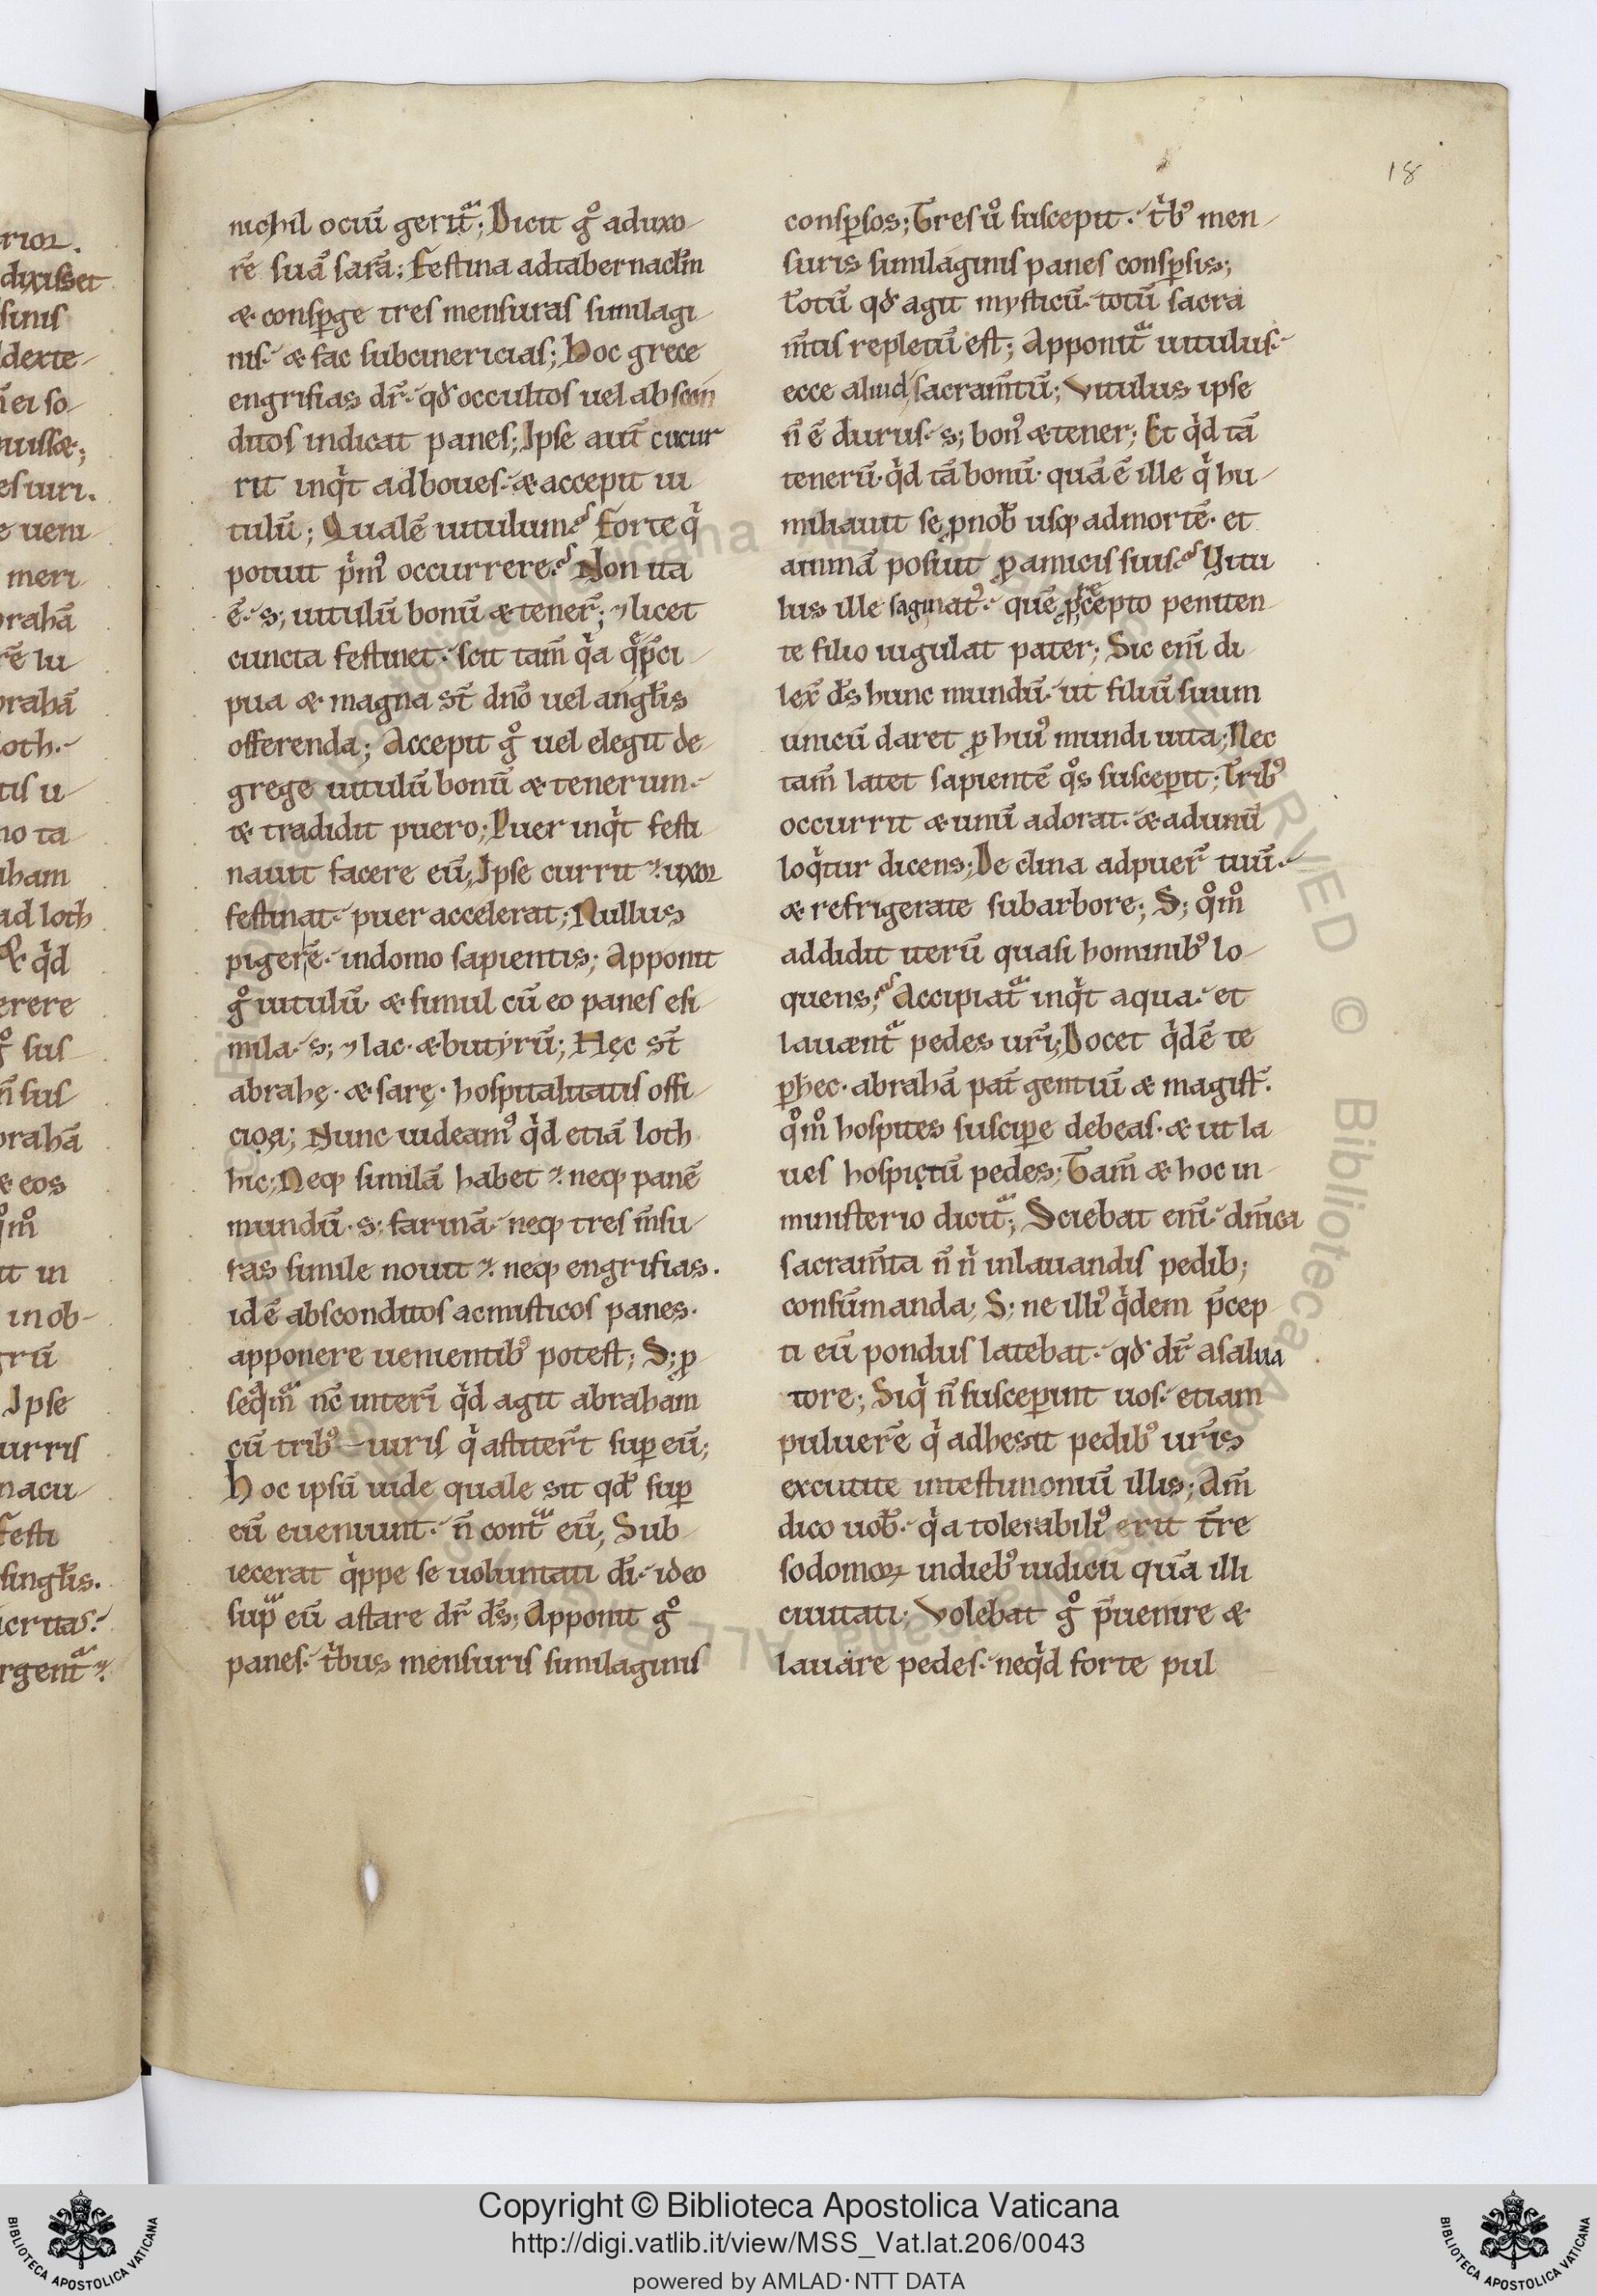 18
nichil ociũ gerit᷑ᵃ; Dicit gͦ aduxo-
rẽ suã sarã; Festina adtabernacl̃m
& consꝑge tres mensuras similagi-
nis. & fac subcinericias; Hoc grece
engrifias dr̃. qđ occultos uel abscon
ditos indicat panes; Ipse aut̃ cucur
rit inqͥt adboues. & accepit ui-
tulũ; Qualẽ uitulum? Forte qͥ
potuit pͥm᾽ occurrere? Non ita
ẽ. s; uitulũ bonũ & tener̃; ⁊ licet
cuncta festinet. scit tam̃ qͥa q̃ p̃ci-
pua & magna st̃ dnõ uel angl̃is
offerenda; Accepit gͦ uel elegit de-
grege uitulũ bonũ & tenerum.
& tradidit puero; Puer inqͥt festi-
nauit facere eũ; Ipse currit. uxor
festinat. puer accelerat; Nullus
piger ẽ. indomo sapientis; Apponit
gͦ uitulũ & simul cũ eo panes esi-
mila. s; ⁊ lac. & butyrũ; Hęc st̃
abrahę. & sarę. hospitalitatis offi-
cioͅa; Nunc uideam᾽ qͥd etiã loth
hic; Neqꝫ similã habet. neqꝫ panẽ
mundũ. s; farinã. neqꝫ tres m̃su-
ras simile nouit. neqꝫ engrifias.
idẽ absconditos acmisticos panes.
apponere uenientib᾽ potest; S; ꝓ
seqͥm᷑ᵃ nc̃ interĩ qͥd agit abraham
cũ trib᾽ uiris qͥ astiter̃t suꝑ eũ;
Hoc ipsũ uide quale sit qđ suꝑ
eũ eueniunt. ñ contᵃ eũ; Sub-
iecerat qͥppe se uoluntati dĩ. ideo
supᵃ eũ astare dr̃ dš; Apponit gͦ
panes. tͥbus mensuris similaginis
consꝑsos; Tres uͦ suscepit. tͥb᾽ men-
suris similaginis panes consꝑsis;
totũ qđ agit mysticũ. totũ sacra
m̃tis repletũ est; Apponit᷑ᵃ uitulus.
ecce aliud sacram̃tũ; Vitulus ipse
ñ ẽ durus. s; bon᾽ & tener; Et qͥd tã
tenerũ. qͥd tã bonũ. quã ẽ ille qͥ hu-
miliauit se ꝓ nob̃ usqꝫ admortẽ. et
animã posuit ꝓ amicis suis? Vitu
lus ille saginat᾽. quẽ p̃cepto peniten-
te filio iugulat pater; Sic enĩ di-
lex̃ dš hunc mundũ. ut filiũ suum
unicũ daret ꝓ hui᾽ mundi uita; Nec
tam̃ latet sapientẽ qͦs susceꝑit; Trib᾽
occurrit & unũ adorat. & adunũ
loqͥtur dicens; Declina adpuer̃ tuũ.
& refrigerate subarbore; S; qͦmͦ
addidit iterũ quasi hominib᾽ lo-
quens? Accipiat᷑ᵃ inqͥt aqua. et
lauent᷑ᵃ pedes urĩ; Docet qͥdẽ te
ꝑ hec. abrahã pat̃ gentiũ & magist̃.
qͦmͦ hospites susciꝑe debeas. & ut la-
ues hospitũ pedes; Tam̃ & hoc in-
ministerio dicit᷑ᵃ; Sciebat enĩ. dñica
sacram̃ta ñ nͥ inlauandis pedib;
consũmanda; S; ne illi᾽ qͥdem p̃cep
ti eũ pondus latebat. qđ dr̃ asalua
tore; Siqͥ ñ susceꝑint uos. etiam
puluerẽ qͥ adhesit pedib᾽ uris̃
excutite intestimoniũ illis; Am̃
dico uob̃. qͥa tolerabili᾽ erit tr̃e
sodomoꝝ indieb᾽ iudicii quã illi
ciuitati; Volebat gͦ p̃uenire &
lauare pedes. neqͥd forte pul
Copyright © Biblioteca Apostolica Vaticana
http://digi.vatlib.it/view/MSS_Vat.lat.206/0043
powered by AMLAD·NTT DATA